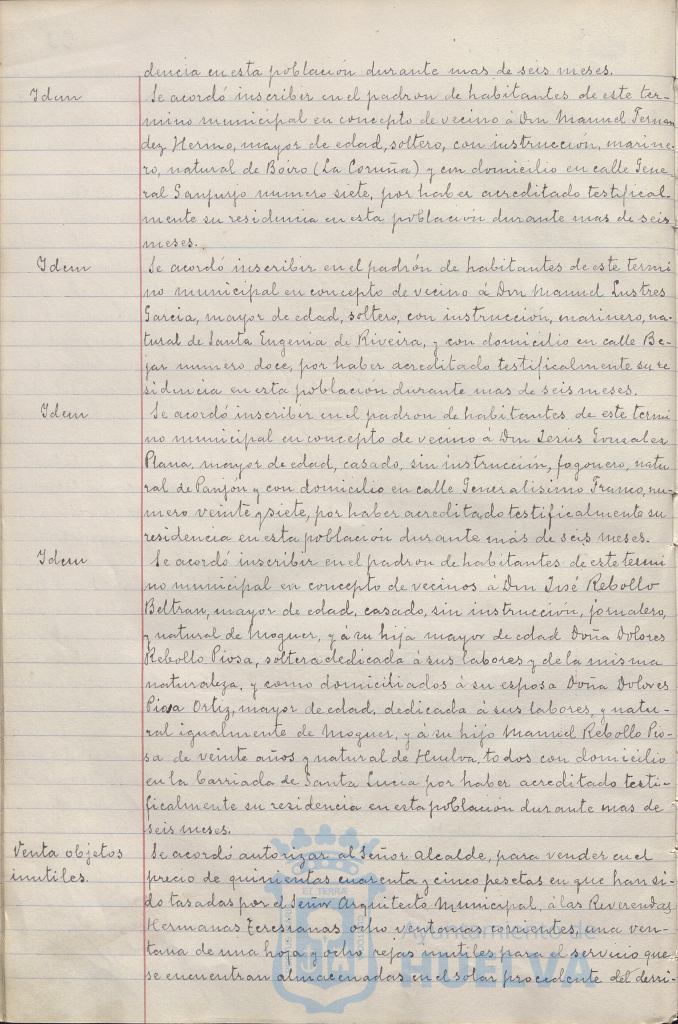 dencia en esta población durante mas de seis meses.
Idem Se acordó inscribir en el padron de habitantes de este ter-
mino municipal en concepto de vecino á Don Manuel Fernan
dez Hermo, mayor de edad, soltero, con instrucción, marine-
ro, natural de Boiro (La Coruña) y con domicilio en calle Gene
ral Sanjurjo numero siete, por haber acreditado testifical-
mente su residencia en esta población durante mas de seis
meses.
Idem Se acordó inscribir en el padrón de habitantes de este termi
no municipal en concepto de vecino á Don Manuel Lustres
Garcia, mayor de edad, soltero, con instrucción, marinero, na-
tural de Santa Eugenia de Riveira, y con domicilio en calle Be-
jar numero doce, por haber acreditado testificalmente su re
sidencia en esta población durante mas de seis meses.
Idem Se acordó inscribir en el padron de habitantes de este termi
no municipal en concepto de vecino á Don Jesús Gonzalez
Plana, mayor de edad, casado, sin instrucción, fogonero, natu
ral de Panjón y con domicilio en calle Generalisimo Franco, nu-
mero veinte y siete, por haber acreditado testificalmente su
residencia en esta población durante más de seis meses.
Idem Se acordó inscribir en el padron de habitantes de este termi
no municipal en concepto de vecinos á Don José Rebollo
Beltran, mayor de edad, casado, sin instrucción, jornalero,
y natural de Moguer, y á su hija mayor de edad Doña Dolores
Rebollo Piosa, soltera dedicada á sus labores y de la misma
naturaleza, y como domiciliados á su esposa Doña Dolores
Piosa Ortiz, mayor de edad, dedicada á sus labores, y natu-
ral igualmente de Moguer, y á su hijo Manuel Rebollo Pio-
sa de veinte años y natural de Huelva, todos con domicilio
en la barriada de Santa Lucia por haber acreditado testi-
ficalmente su residencia en esta población durante mas de
seis meses.
Venta objetos Se acordó autorizar al Señor Alcalde, para vender en el
inutiles. precio de quinientas cuarenta y cinco pesetas en que han si-
do tasadas por el Señor Arquitecto Municipal, á las Reverendas
Hermanas Teresianas ocho ventanas corrientes, una ven-
tana de una hoja y ocho rejas inutiles para el servicio que
se encuentran almacenadas en el solar procedente del derri-
Ayuntamiento de
HUELVA